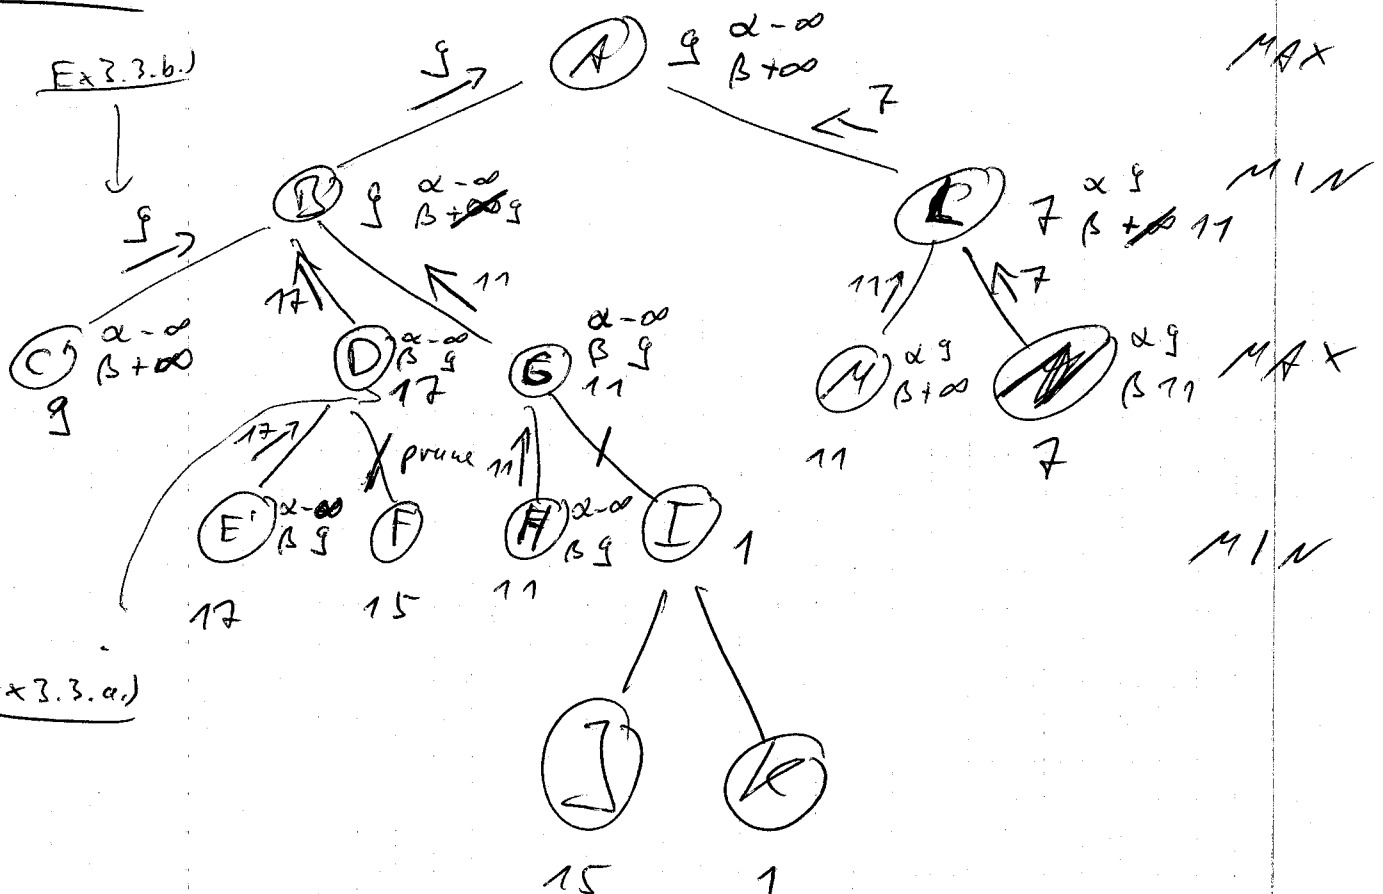 Ex 3.3.b.)
A 9 α -∞
β +∞
MAX
9
7
B 9 α -∞
β +∞ 9
L 7 α 9
β +∞ 11
MIN
9
17
11
11
7
C α -∞
β +∞
9
D α -∞
β 9
17
G α -∞
β 9
11
M α 9
β +∞
11
N α 9
β 11
7
MAX
17
prune
11
E α -∞
β 9
17
F
15
H α -∞
β 9
11
I 1
MIN
x 3.3.a.)
J
15
K
1